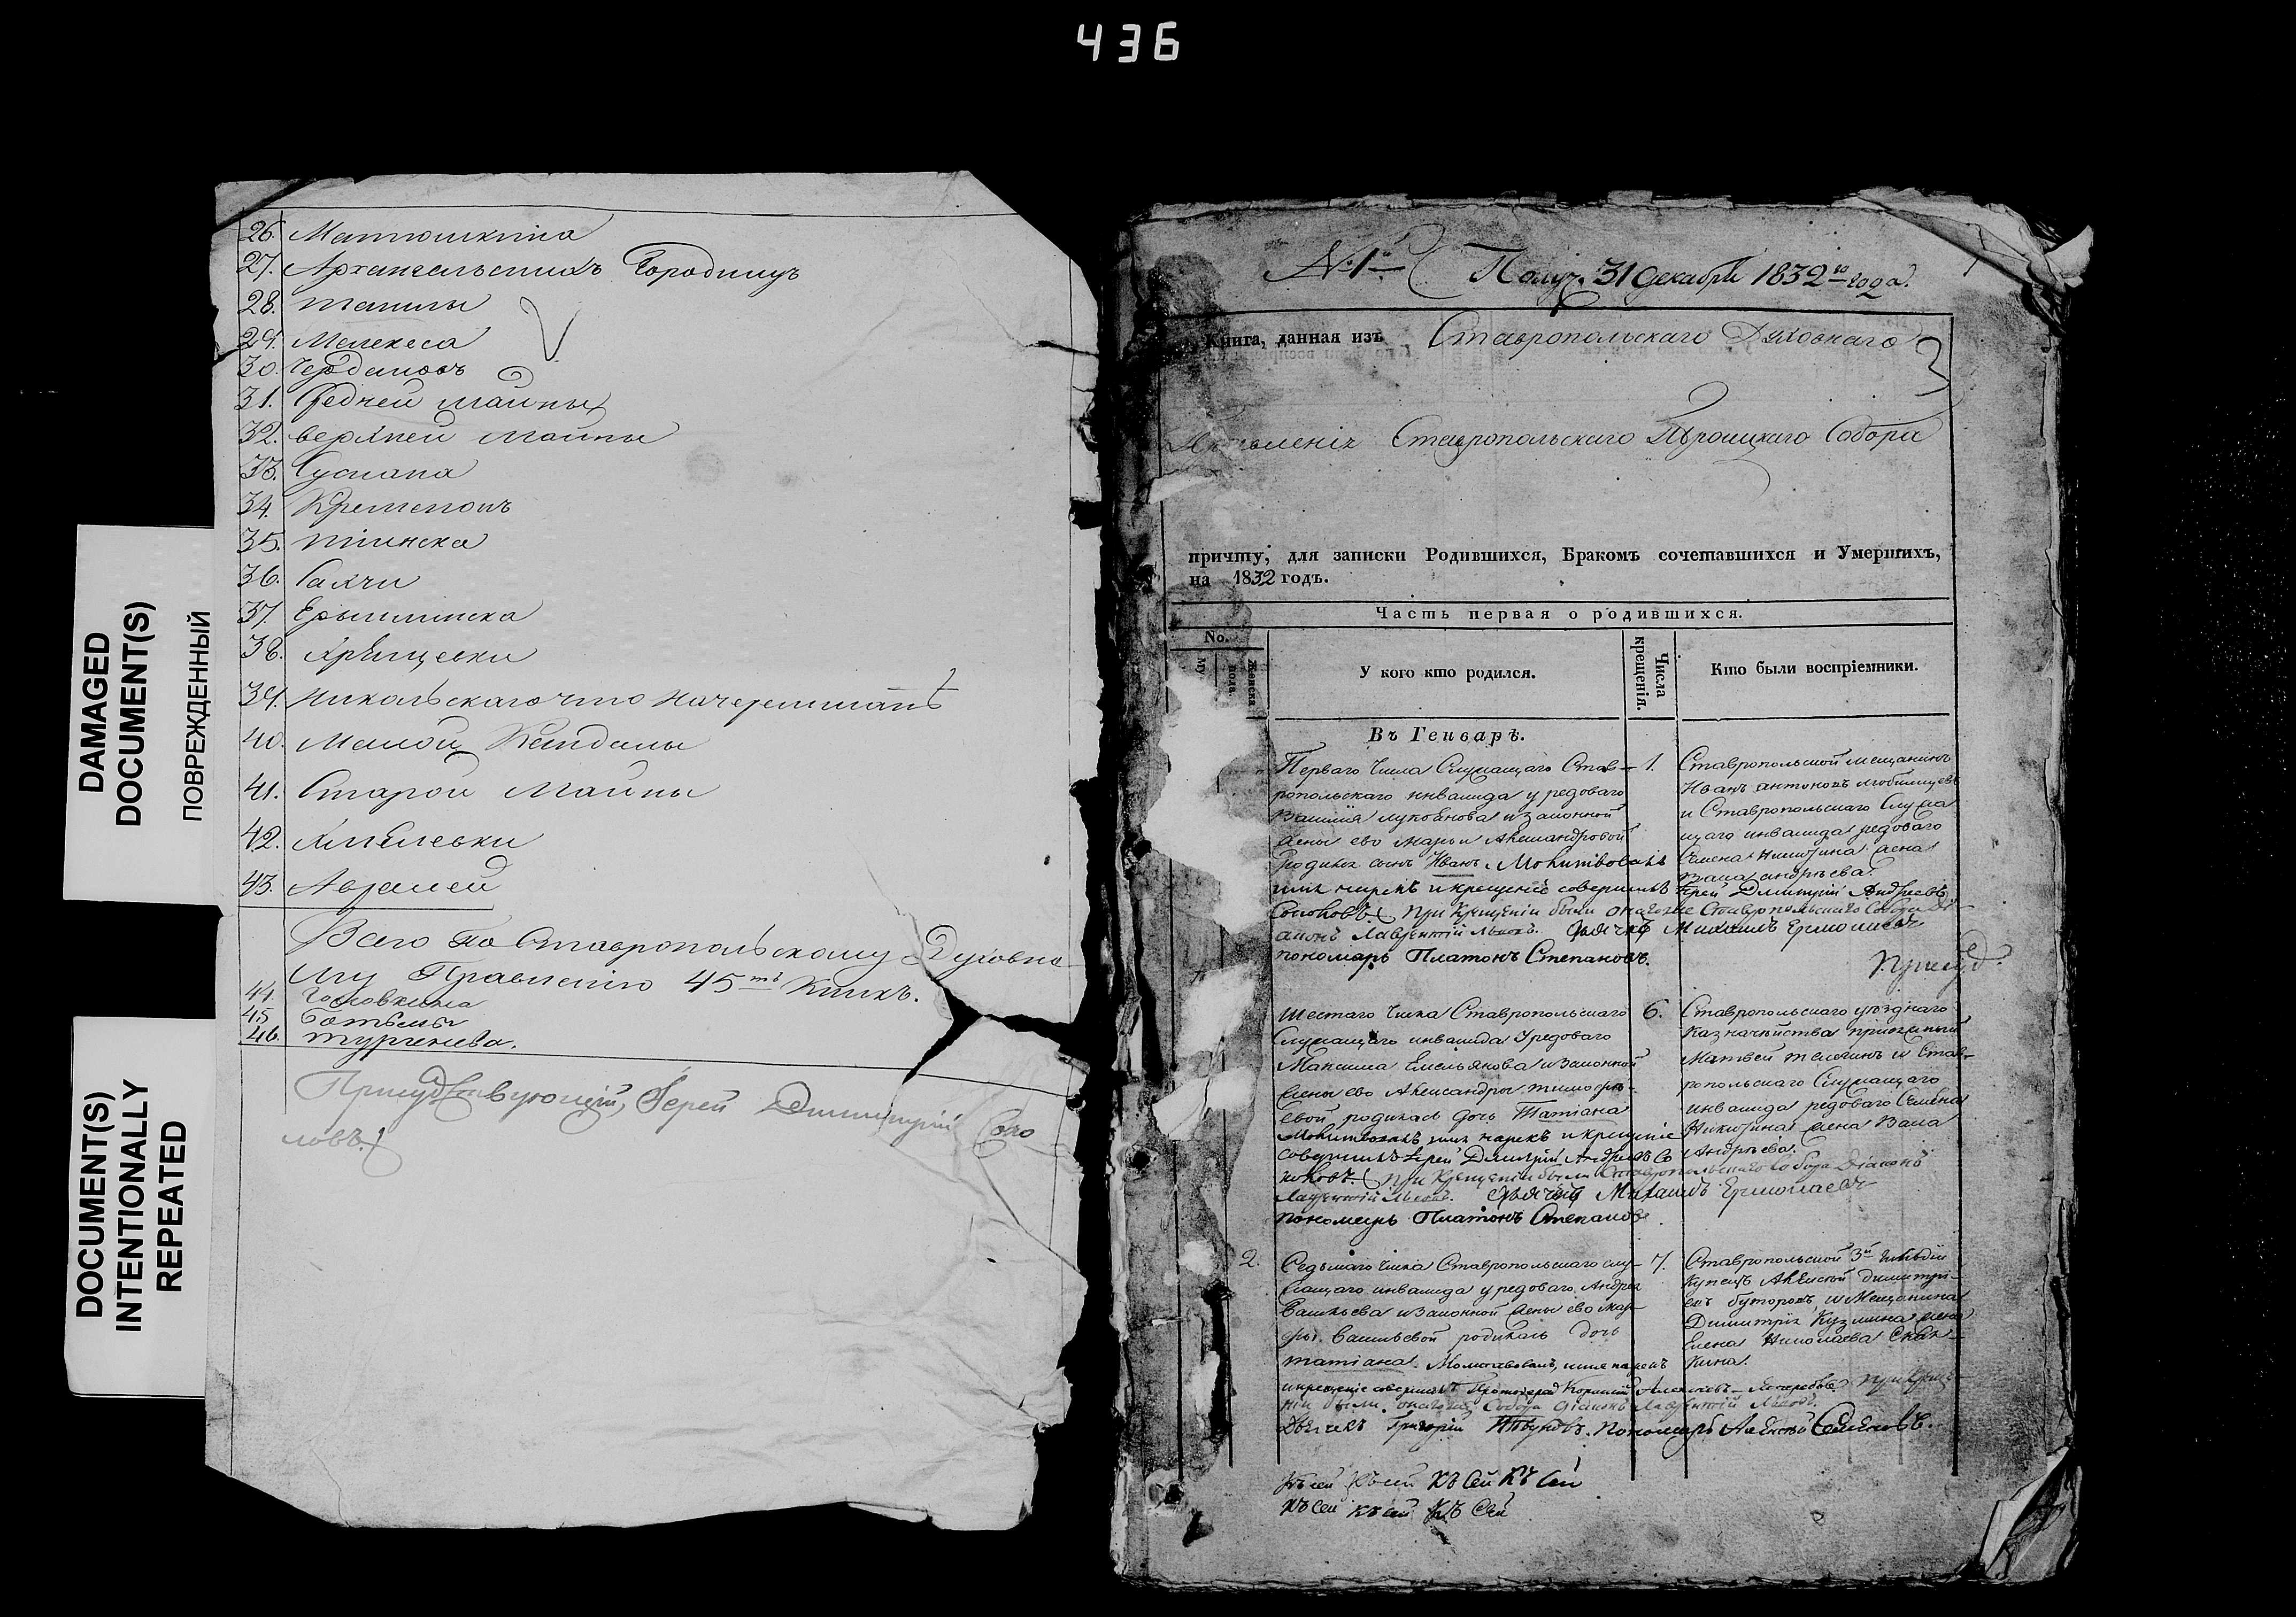 436
26. Матюшкина
27. Архангельскихъ Городищъ
28. Ташлы
29. Мелекеса
30. Чердаковъ
31. Средней Майны
32. верхней Майны
33. Сускана
34. Кременокъ
35. Тіинска
36. Чалчи
37. Ерыклинска
38. Хрящевки
39. Никольскаго что на черемшанѣ
40. Малой Кандалы
41. Старой Майны
42. Хмѣлевки
43. Авралей
Всего по Ставропольскому Духовно
му Правленію 45тъ книгъ.
44. Головкина
45 Ботьмы
46. Тургенева.
Присудствующій, Іерей Димитрій Соко
ловъ
DAMAGED
DOCUMENT(S)
ПОВРЕЖДЕННЫЙ
DOCUMENT(S)
INTENTIONALLY
REPEATED
№ 1й Получ. 31 декабря 1832го года.
Книга, данная изъ Ставропольскаго Духовнаго
3
Ставропольскаго Троицкаго Собора
причту, для записки Родившихся, Бракомъ сочетавшихся и Умершихъ,
на 1832 годъ.
Часть первая о родившихся.
No.
Женска
пола.
У кого кто родился.
Числа
крещенія.
Кто были воспріемники.
Въ Генварѣ.
Перваго числа Служащаго Став-
ропольскаго инвалида у редоваго
Василія Лукоянова и законной
жены его Марьи Александровой
родился сынъ Иванъ. Молитвовалъ
имя нарекъ и крещеніе совершилъ Іерей Димитрій Андреевъ
Соколовъ. При крещеніи были онагоже Ставропольскаго Собора Ді-
аконъ Лаврентій Львовъ. Дьячкъ Михаилъ Ермолаевъ
пономарь Платонъ Степановъ.
1.
Ставропольской мещанинъ
Иванъ Антоновъ
и Ставропольскаго Служа
щаго инвалида редоваго
Семена Никитина жена
Андрѣева.
Присуд.
Шестаго числа Ставропольскаго
Служащаго инвалида у редоваго
Максима Емельянова и законной
жены его Александры Тимофѣ-
евой родилась дочь Татіана
Молитвовалъ имя нарекъ и крещеніе
совершилъ Іерей Димитрій Андреевъ Со
коловъ. При крещеніи были Ставропольскаго Собора Діаконъ
Лаврентій Львовъ. Дьячкъ Михаилъ Ермолаевъ
пономарь Платонъ Степановъ
6.
Ставропольскаго уѣзднаго
Казначейства присяжный
Матвей Телегинъ и Став-
ропольскаго Служащаго
инвалида редоваго Семена
Никитина жена
Андрѣева.
2.
Седьмаго числа Ставропольскаго слу-
жащаго инвалида у редоваго Андрея
Васильева и законной жены его Мар-
фы Васильевой родилась дочь
Татіана. Молитвовалъ, имя нарекъ
и крещеніе совершилъ Протоіерей
Собора діаконъ Лаврентій Львовъ.
Дьячекъ Григорій Пономарь Алексѣй Семеновъ.
7.
Ставропольской 3й гильдіи
купецъ Алексѣй Димитрі-
евъ Буторовъ, и Мещанина
Димитрія Кузмина жена
Елена Николаева
кина.
Къ сей Къ сей Къ Сей Къ Сей
Къ Сей Къ сей Къ Сей